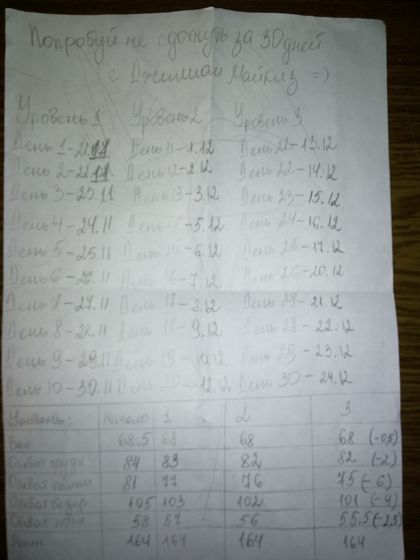 Попробуй не сдохнуть за 30 дней
с Джиллиан Майклз =)
Уровень 1 Уровень 2 Уровень 3
День 1-21.11 День 11-1.12 День 21-13.12
День 2-22.11 День 12-2.12 День 22-14.12
День 3-23.11 День 13-3.12 День 23-15.12
День 4-24.11 День 14-5.12 День 24-16.12
День 5-25.11 День 15-6.12 День 25-17.12
День 6-26.11 День 16-7.12 День 26-20.12
День 7-27.11 День 17-8.12 День 27-21.12
День 8-28.11 День 18-9.12 День 28-22.12
День 9-29.11 День 19-10.12 День 29-23.12
День 10-30.11 День 20-12.12 День 30-24.12
Уровень: Начало 1 2 3
Вес 68.5 68 68 68 (-0,5)
Обхват груди 84 83 82 82 (-2)
Обхват талии 81 77 76 75 (-6)
Обхват бедер 105 103 102 101 (-4)
Обхват ноги 58 57 56 55.5 (-2,5)
Рост 164 164 164 164